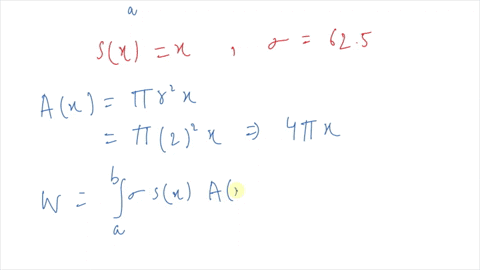 a
S(x) = x , σ = 62.5
A(x) = πr²x
= π(2)²x ⇒ 4πx
W = ∫ₐᵇ σ s(x) A(